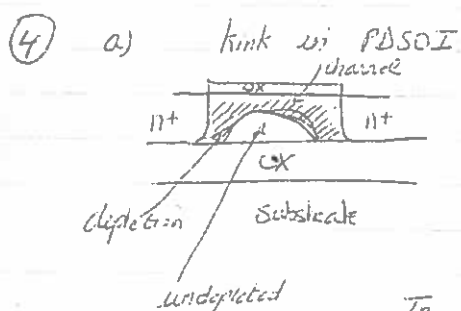 ④ a) kink in PDSOI
channel
ox
n+ n+
ox
depletion substrate
undepleted
I_D